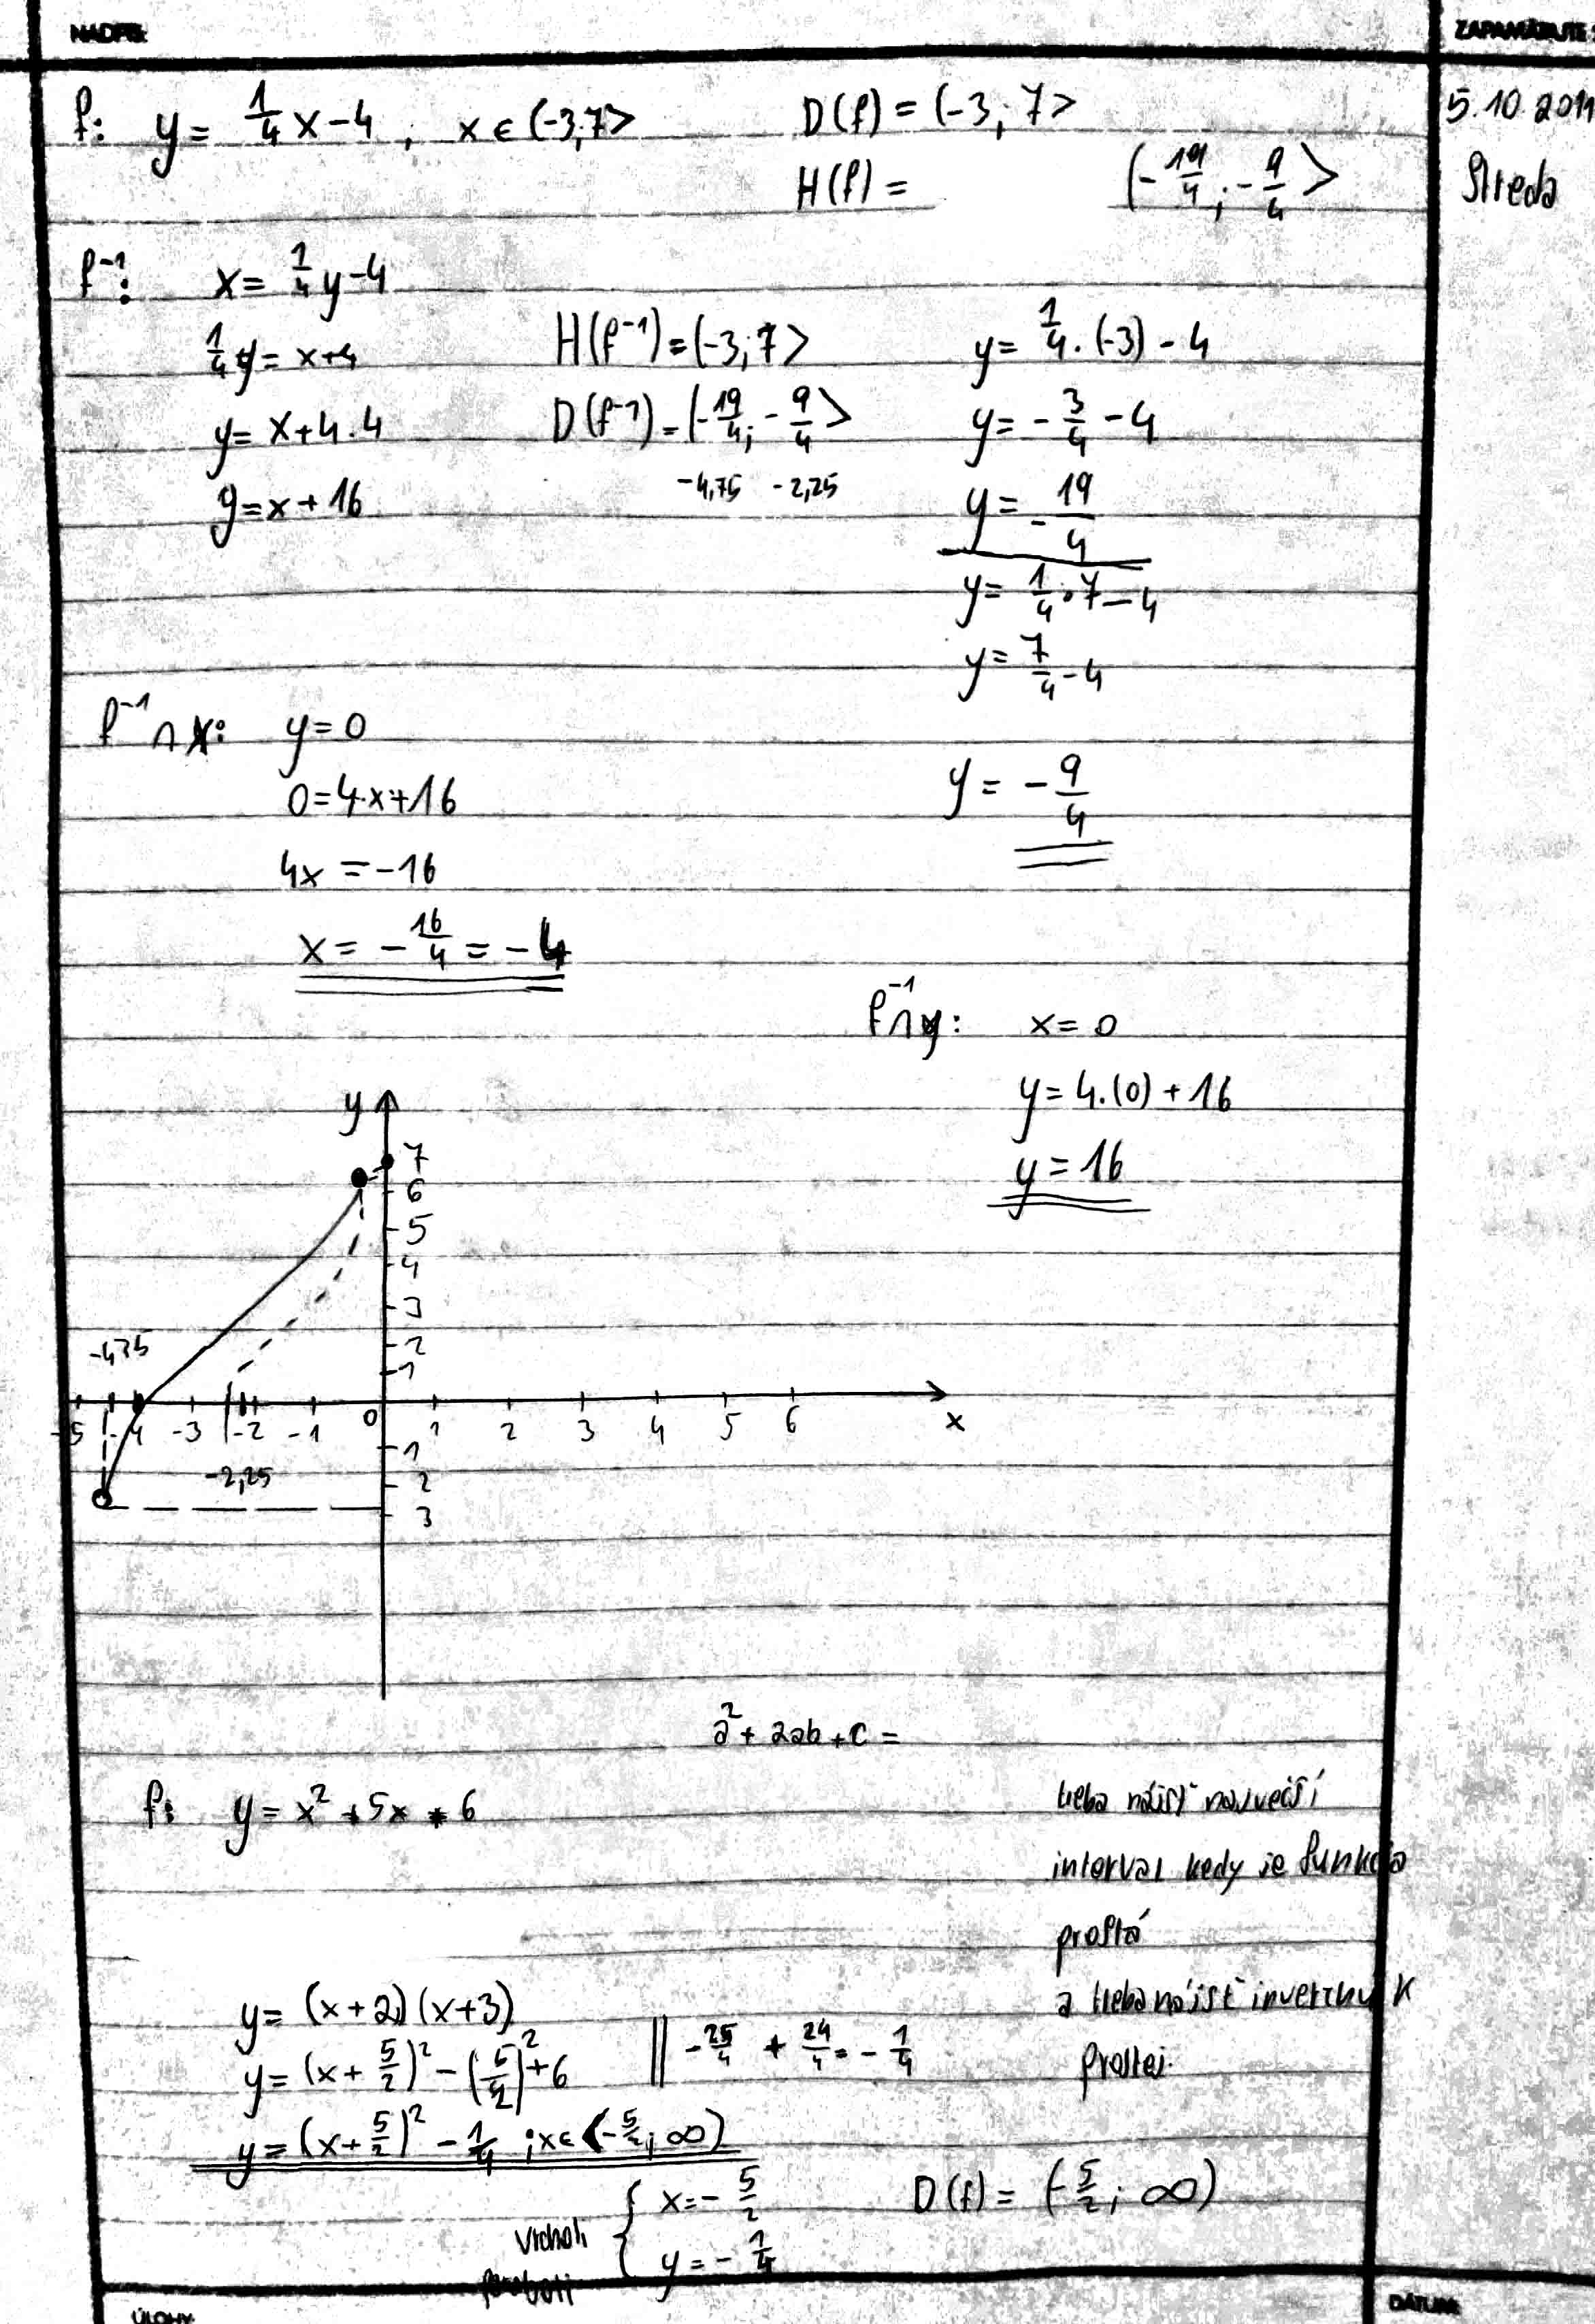 NADPIS:
ZAPAMÄTAJTE
f: y = 1/4 x - 4 , x ∈ (-3,7>
D(f) = (-3; 7>
5.10.2011
Streda
H(f) = (-19/4; -9/4>
f⁻¹: x = 1/4 y - 4
1/4 y = x+4
H(f⁻¹) = (-3; 7>
y = 1/4 . (-3) - 4
y = x+4.4
D(f⁻¹) = (-19/4; -9/4>
y = -3/4 - 4
-4,75 -2,25
y = x + 16
y = -19/4
y = 1/4 . 7 - 4
y = 7/4 - 4
f⁻¹ ∩ x: y = 0
0 = 4.x + 16
y = -9/4
4x = -16
x = -16/4 = -4
f⁻¹ ∩ y: x = 0
y = 4.(0) + 16
y = 16
y
7
6
5
4
3
2
1
-4,75
-5 -4 -3 -2 -1 0 1 2 3 4 5 6 x
-2,25
-1
2
3
a² + 2ab + c =
f: y = x² + 5x + 6
treba nájsť najväčší
interval kedy je funkcia
prostá
a treba nájsť inverznú k
prostej.
y = (x+2)(x+3)
y = (x + 5/2)² - (5/2)² + 6 || -25/4 + 24/4 = -1/4
y = (x + 5/2)² - 1/4 ; x ∈ <-5/2; ∞)
vrchol
paraboli
{ x = -5/2
y = -1/4
D(f) = (-5/2; ∞)
ÚLOHY:
DÁTUM: